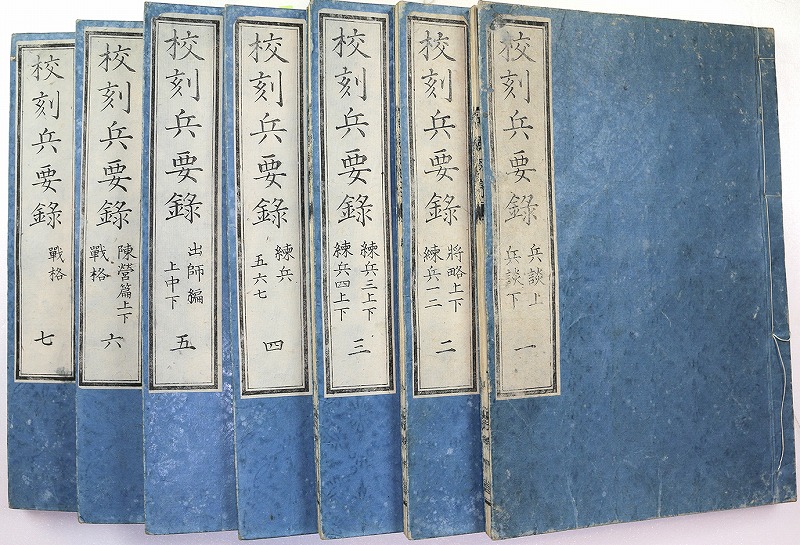 校刻兵要錄
兵談上
兵談下
一
校刻兵要錄
將略上下
練兵一二
二
校刻兵要錄
練兵三上下
練兵四上下
三
校刻兵要錄
練兵
五六七
四
校刻兵要錄
出師編
上中下
五
校刻兵要錄
陳營篇上下
戰格
六
校刻兵要錄
戰格
七